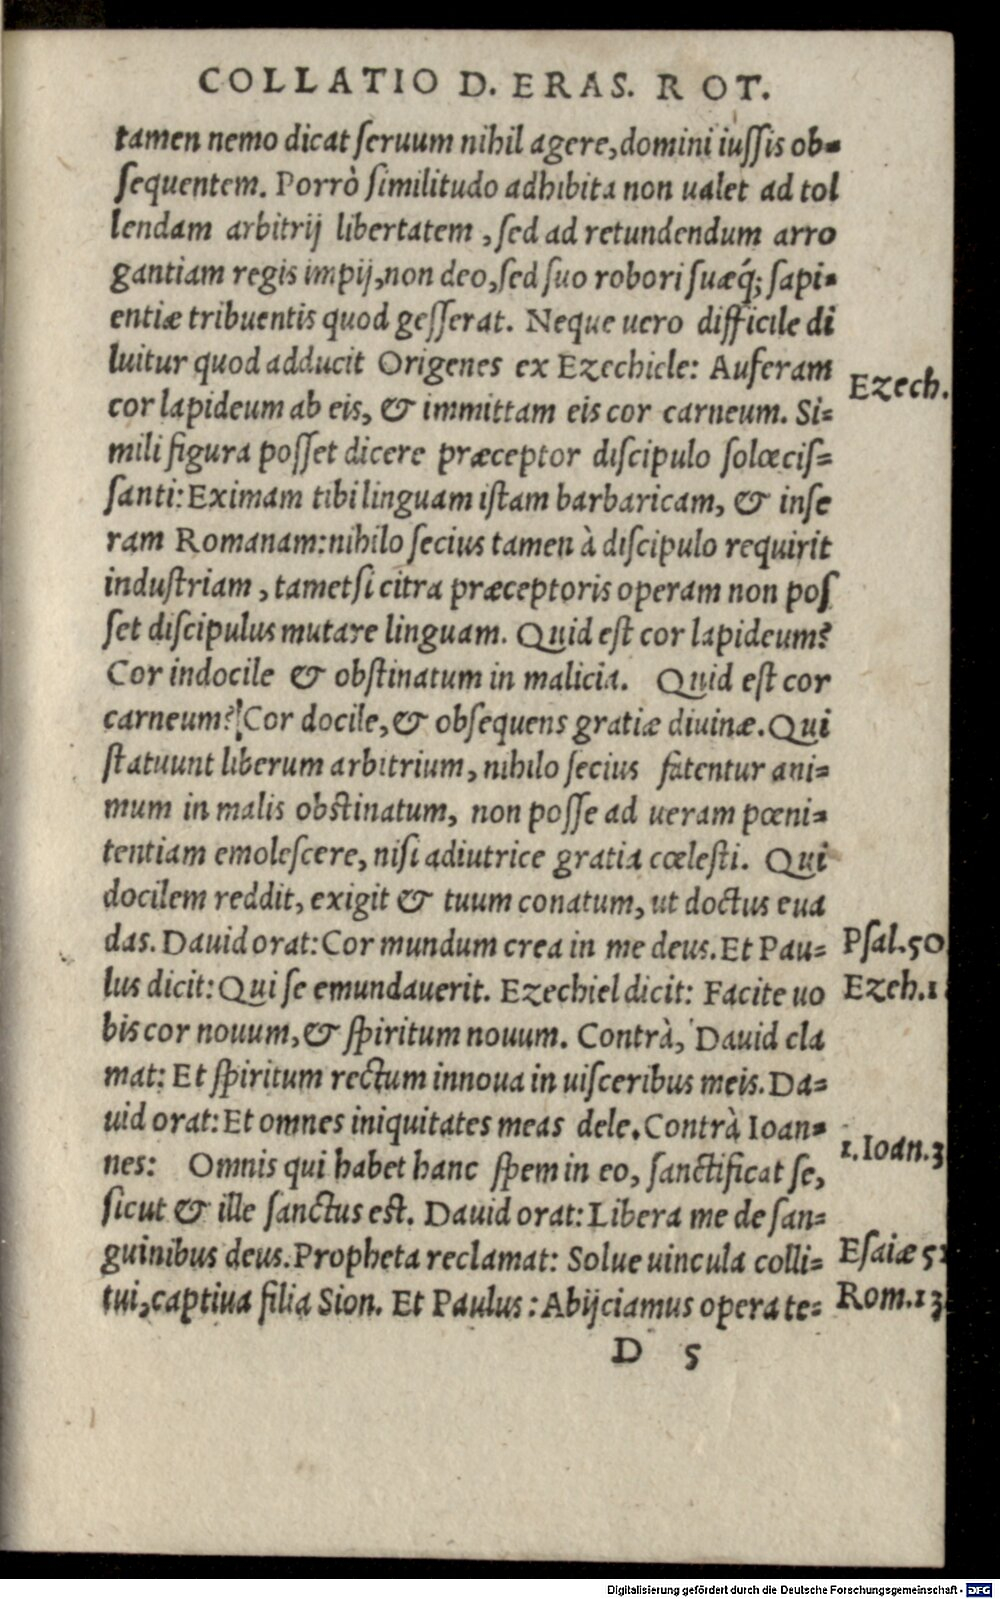 COLLATIO D. ERAS. ROT.
tamen nemo dicat ſeruum nihil agere, domini iuſſis ob-
ſequentem. Porrò ſimilitudo adhibita non ualet ad tol
lendam arbitrij libertatem, ſed ad retundendum arro
gantiam regis impij, non deo, ſed ſuo robori ſuæq́; ſapi-
entiæ tribuentis quod geſſerat. Neque uero difficile di
luitur quod adducit Origenes ex Ezechiele: Auferam
Ezech.
cor lapideum ab eis, & immittam eis cor carneum. Si-
mili figura poſſet dicere præceptor diſcipulo ſolœciſ-
ſanti: Eximam tibi linguam iſtam barbaricam, & inſe
ram Romanam: nihilo ſecius tamen à diſcipulo requirit
induſtriam, tametſi citra præceptoris operam non poſ
ſet diſcipulus mutare linguam. Quid eſt cor lapideum?
Cor indocile & obſtinatum in malicia. Quid eſt cor
carneum? Cor docile, & obſequens gratiæ diuinæ. Qui
ſtatuunt liberum arbitrium, nihilo ſecius fatentur ani-
mum in malis obſtinatum, non poſſe ad ueram pœni-
tentiam emoleſcere, niſi adiutrice gratia cœleſti. Qui
docilem reddit, exigit & tuum conatum, ut doctus eua
das. Dauid orat: Cor mundum crea in me deus. Et Pau-
Pſal.50
lus dicit: Qui ſe emundauerit. Ezechiel dicit: Facite uo
Ezeh.1
bis cor nouum, & ſpiritum nouum. Contrà, Dauid cla
mat: Et ſpiritum rectum innoua in uiſceribus meis. Da-
uid orat: Et omnes iniquitates meas dele. Contrà Ioan-
1.Ioan.3
nes: Omnis qui habet hanc ſpem in eo, ſanctificat ſe,
ſicut & ille ſanctus eſt. Dauid orat: Libera me de ſan-
guinibus deus. Propheta reclamat: Solue uincula colli-
Eſaiæ 5
tui, captiua filia Sion. Et Paulus: Abijciamus opera te-
Rom.13
D 5
Digitalisierung gefördert durch die Deutsche Forschungsgemeinschaft - DFG